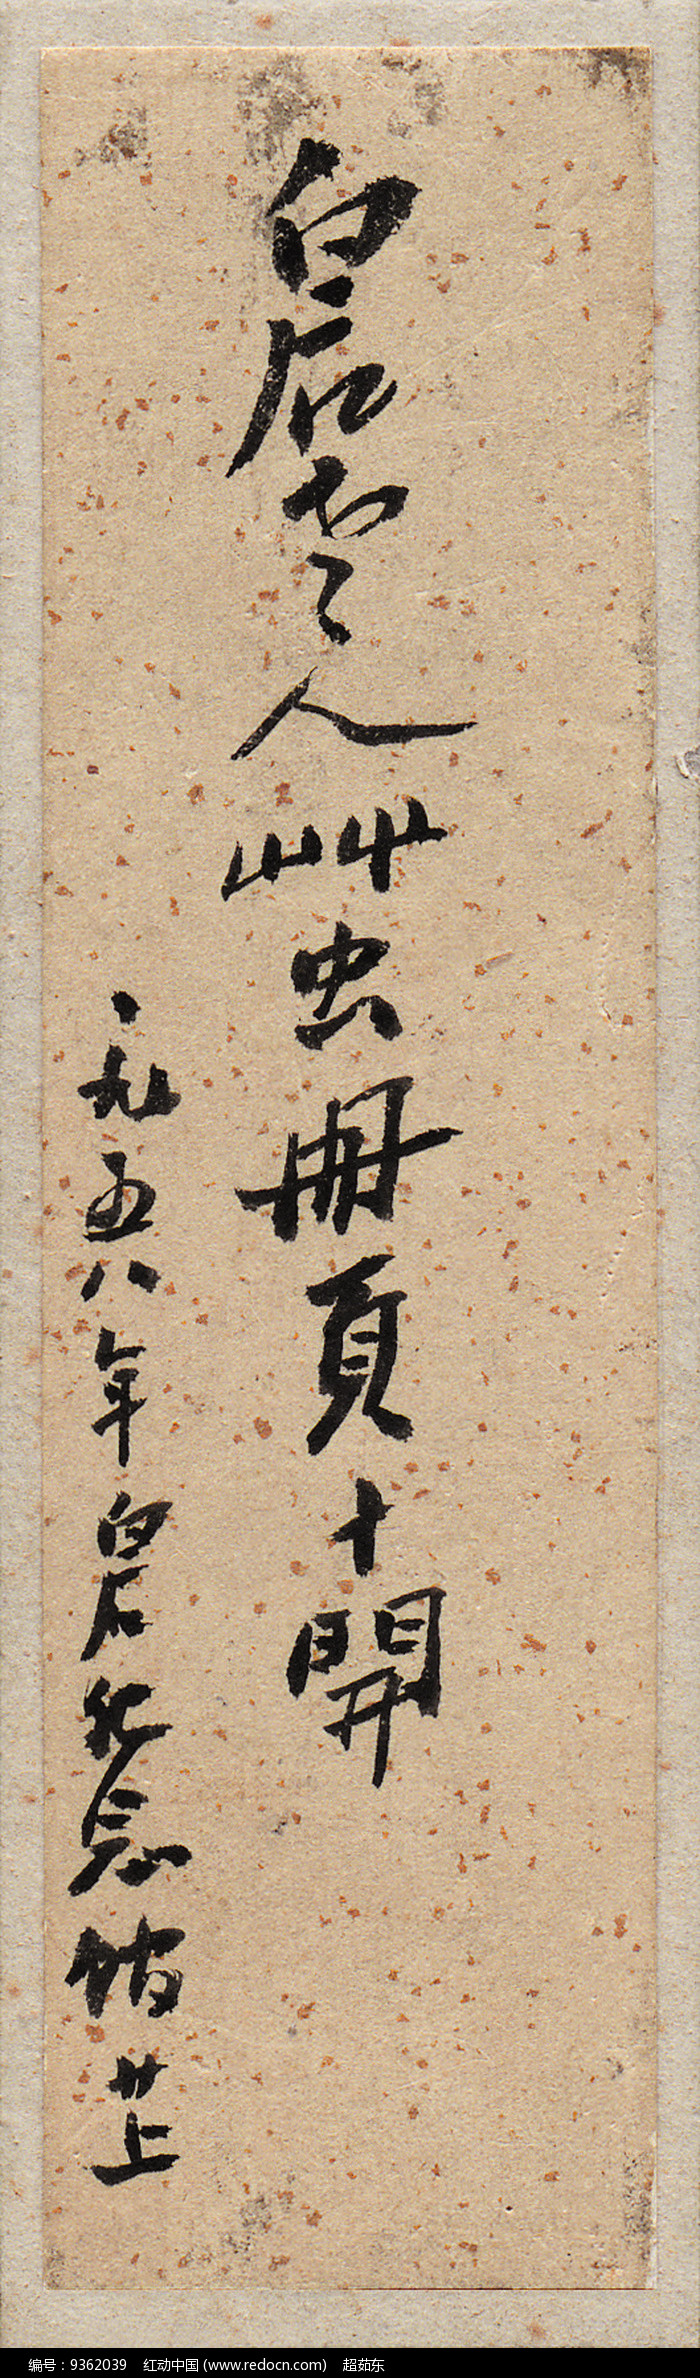 白石老人艸虫冊頁十開
一九五八年白石紀念館
编号：9362039 红动中国 (www.redocn.com) 超茹东